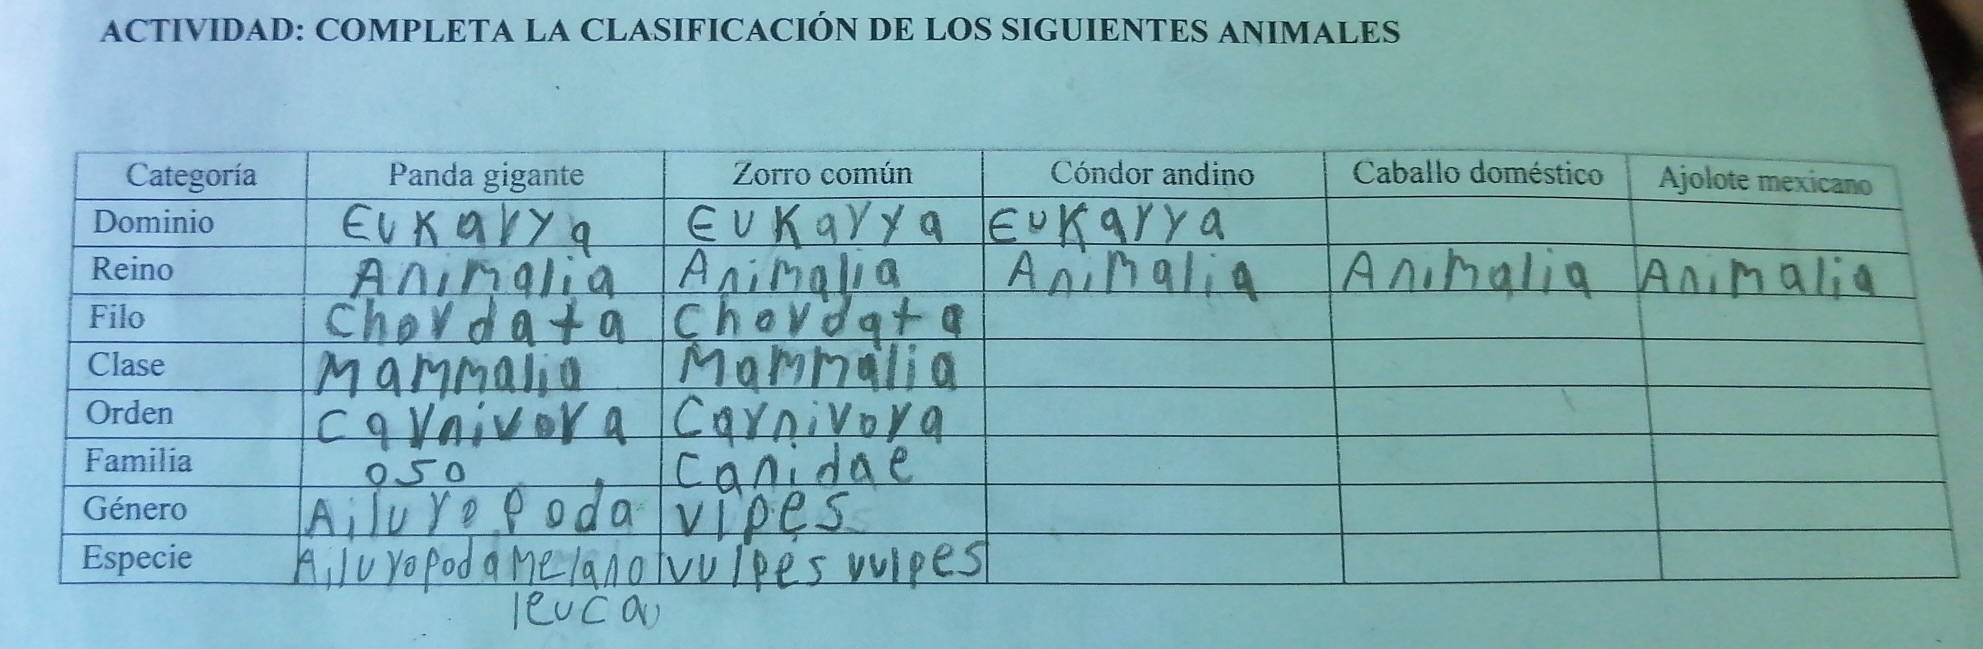 ACTIVIDAD: COMPLETA LA CLASIFICACIÓN DE LOS SIGUIENTES ANIMALES
Categoría Panda gigante Zorro común Cóndor andino Caballo doméstico Ajolote mexicano
Dominio Eukarya Eukarya Eukarya
Reino Animalia Animalia Animalia Animalia Animalia
Filo Chordata Chordata
Clase Mammalia Mammalia
Orden Carnivora Carnivora
Familia oso Canidae
Género Ailuropoda vlpes
Especie Ailuropoda melano vulpes vulpes
leuca